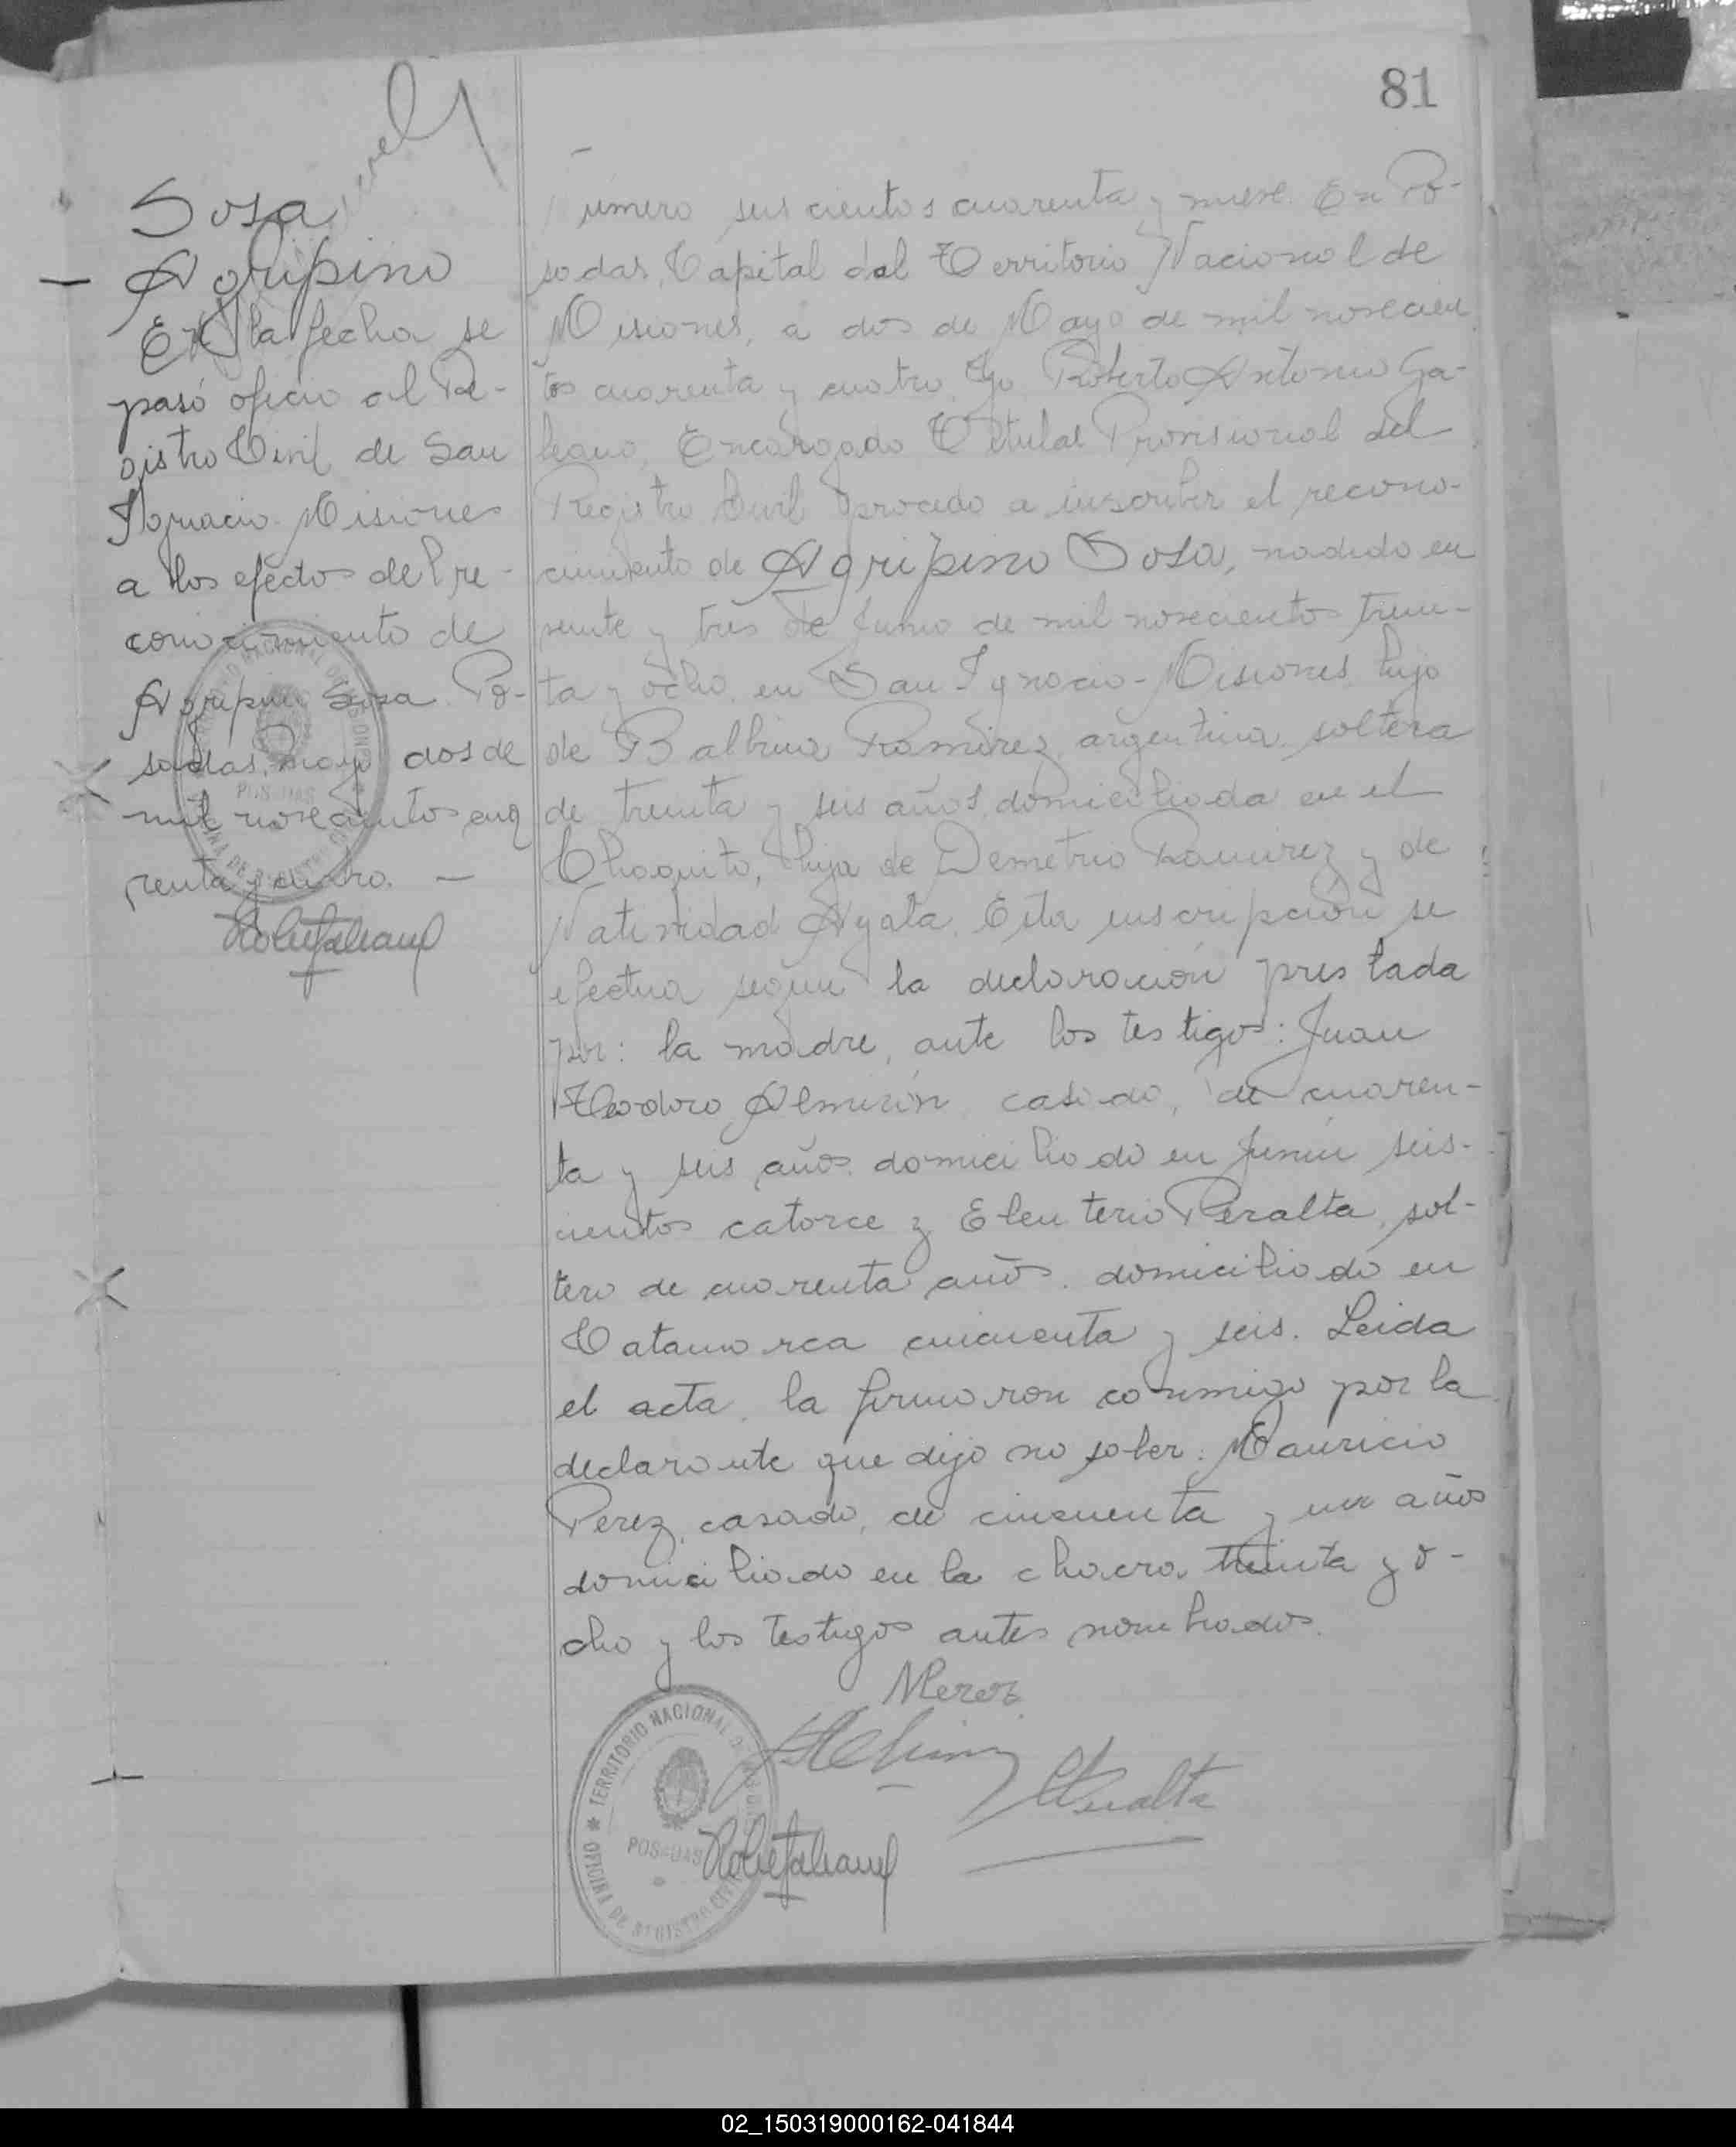 81
Sosa
Agripino
En la fecha se
pasó oficio al Re-
gistro Civil de San
Ignacio Misiones
a los efectos del re-
conocimiento de
Agripino Sosa. Po-
sadas, mayo dos de
mil novecientos cua
renta y cuatro. —
Número seiscientos cuarenta y nueve. En Po-
sadas, Capital del Territorio Nacional de
Misiones, a dos de Mayo de mil novecien
tos cuarenta y cuatro. Yo Roberto Antonio Ga-
leano, Encargado Titular Provisional del
Registro Civil procedo a inscribir el recono-
cimiento de Agripino Sosa, nacido en
veinte y tres de Junio de mil novecientos trein-
ta y ocho, en San Ignacio - Misiones, hijo
de Balbina Ramirez, argentina, soltera
de treinta y seis años, domiciliada en el
Chaquito, hija de Demetrio Ramirez y de
Natividad Ayala. Esta inscripción se
efectua según la declaración prestada
por: la madre, ante los testigos: Juan
Teodoro Almirón, casado, de cuaren-
ta y seis años, domiciliado en Junin seis-
cientos catorce y Eleuterio Peralta, sol-
tero de cuarenta años, domiciliado en
Catamarca cincuenta y seis. Leida
el acta, la firmaron conmigo por la
declarante que dijo no saber: Mauricio
Perez, casado, de cincuenta y un años
domiciliado en la chacra treinta y o-
cho y los testigos antes nombrados.
MPerez
EPeralta
TERRITORIO NACIONAL DE MISIONES
POSADAS
OFICINA DE REGISTRO CIVIL
02_150319000162-041844